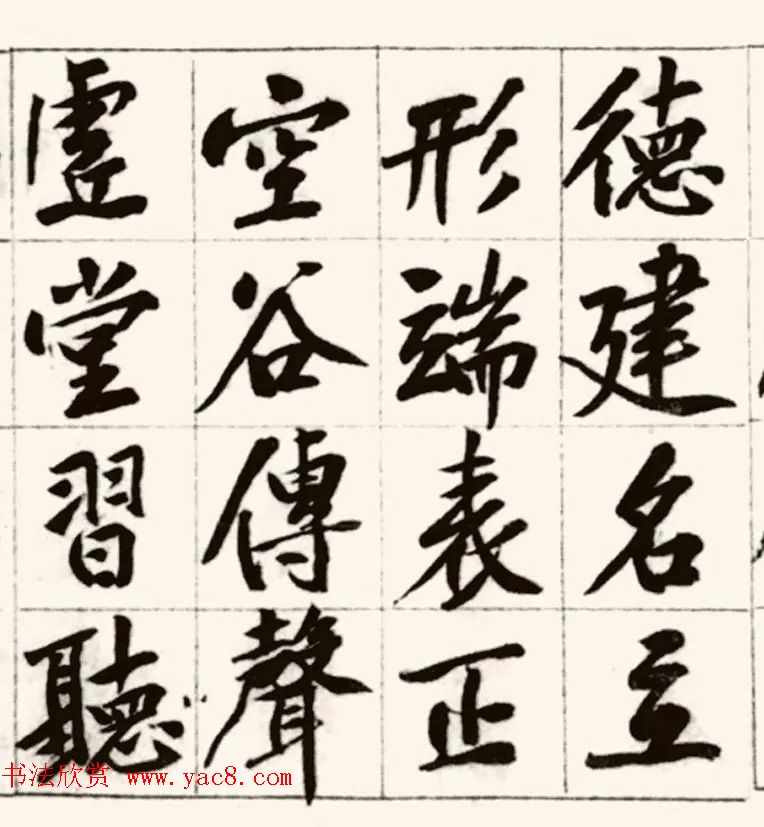 德建名立
形端表正
空谷傳聲
虛堂習聽
书法欣赏 www.yac8.com